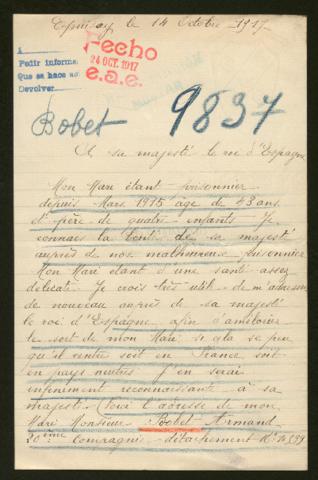 Epinay le 14 Octobre 1917
A
Pedir informe
Que se hace
Devolver
Fecho
24 OCT. 1917
e.a.e.
9837
Bobet
A sa majesté le roi d'Espagne
Mon Mari étant prisonnier
depuis Mars 1915 age de 43 ans
et père de quatre enfants Je
connais la bonté de sa majesté
auprès de nos malheureux prisonnier
Mon Mari étant d'une santé assez
délicate Je crois très utile de m'adresser
de nouveau auprès de sa majesté
le roi d'Espagne afin d'améliorer
le sort de mon Mari si cela se peu
qu'il rentre soit en France soit
en pays neutres J'en serai
infiniment reconnaissante à sa
majesté (Voici l'adresse de mon
Mari Monsieur Bobet Armand
20ème Compagnie détachement